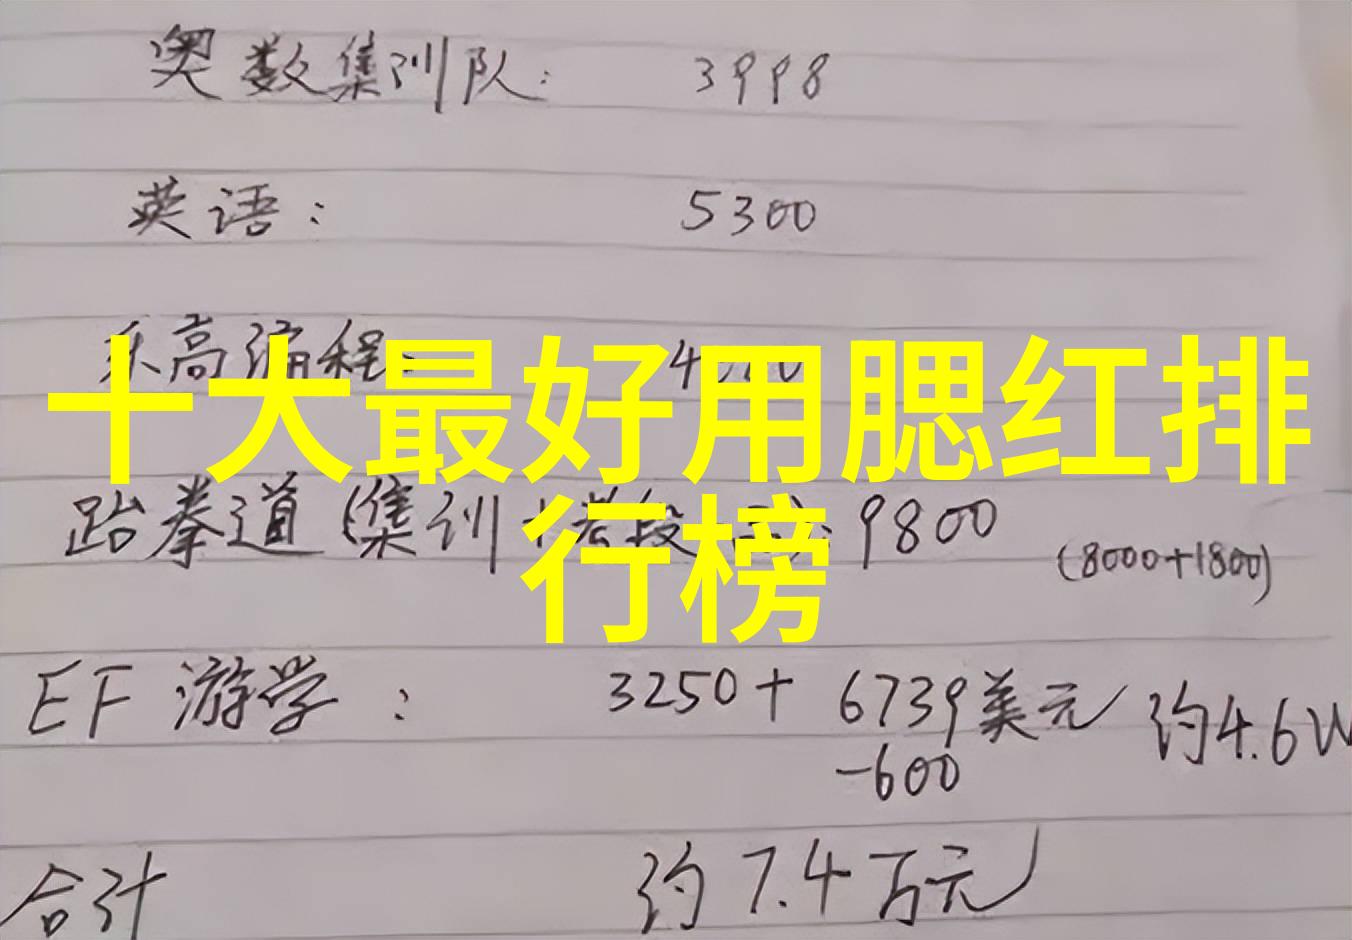 奥数集训队: 3998
英语: 5300
乐高编程:
十大最好用腮红排
行榜
跆拳道(集训+考段 9800 (8000+1800)
EF 游学: 3250+6739美元 约4.6W
-600
合计 约7.4万元